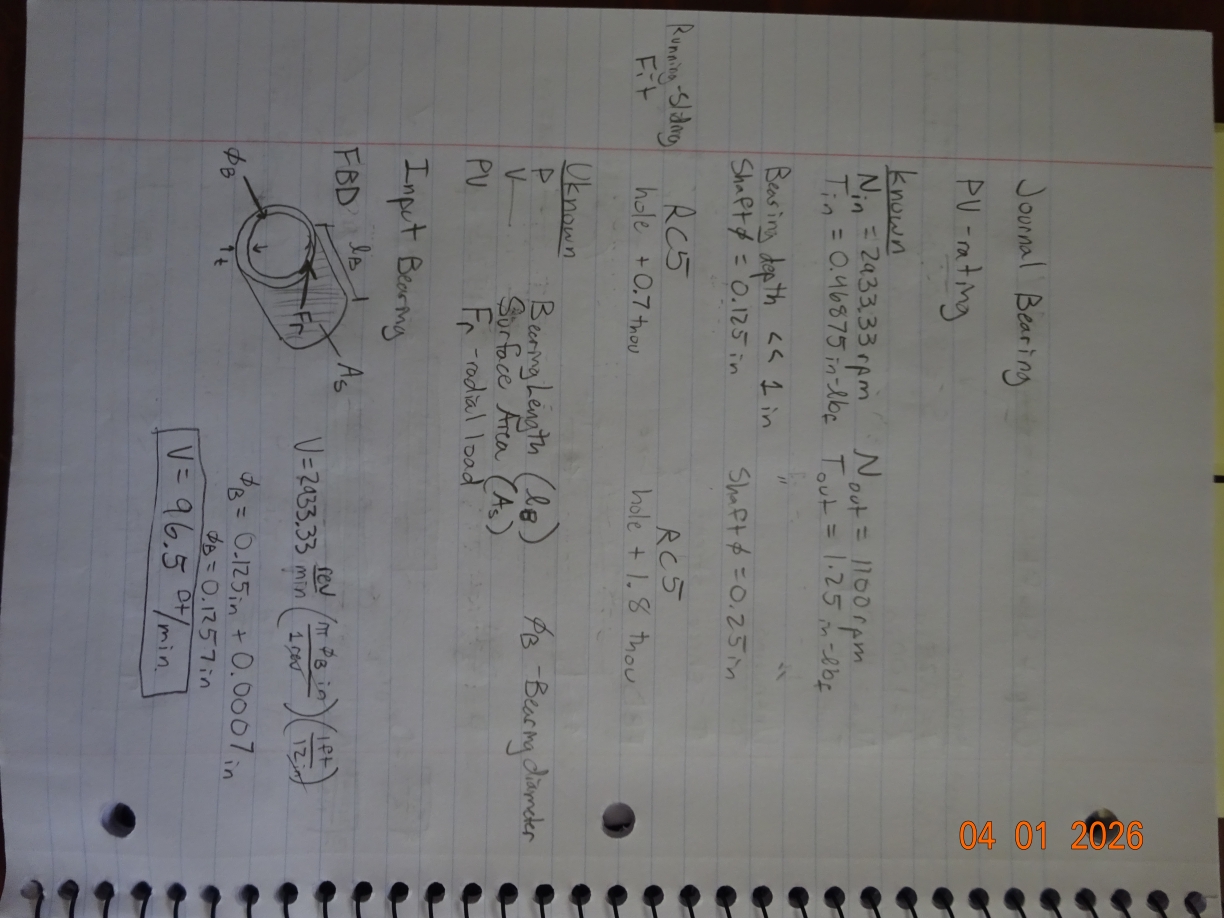 Journal Bearing
PV-rating
Known
Nin = 2933.33 rpm Nout = 1100 rpm
Tin = 0.46875 in-lbf Tout = 1.25 in-lbf
Bearing depth << 1 in " "
Shaft ϕ = 0.125 in Shaft ϕ = 0.25 in
Running-Sliding Fit
RC5 RC5
hole +0.7 thou hole + 1.8 thou
Uknown
P Bearing Length (lB) ϕB - Bearing diameter
V Surface Area (As)
PV Fr - radial load
Input Bearing
FBD
lB
As
Fr
ϕB
t
V = 2933.33 rev/min (π ϕB in / 1 rev) (1 ft / 12 in)
ϕB = 0.125 in + 0.0007 in
ϕB = 0.1257 in
V = 96.5 ft/min.
04 01 2026